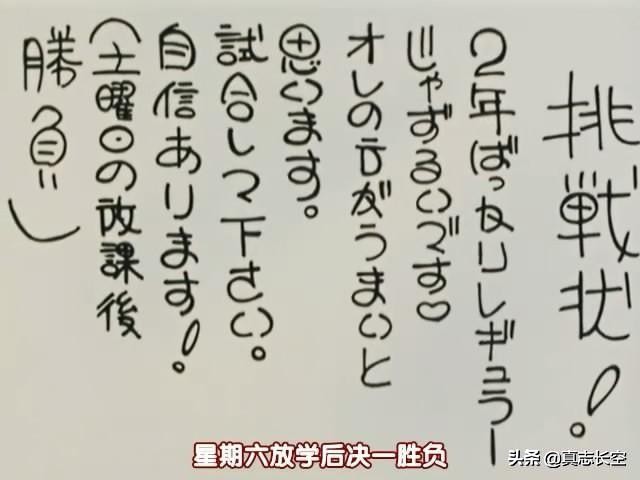 挑戦状！
2年ばっかりレギュラー
じゃずるいです♡
オレの方がうまいと
思います。
試合して下さい。
自信あります！
（土曜日の放課後
勝負）
星期六放学后决一胜负
头条 @真志长空